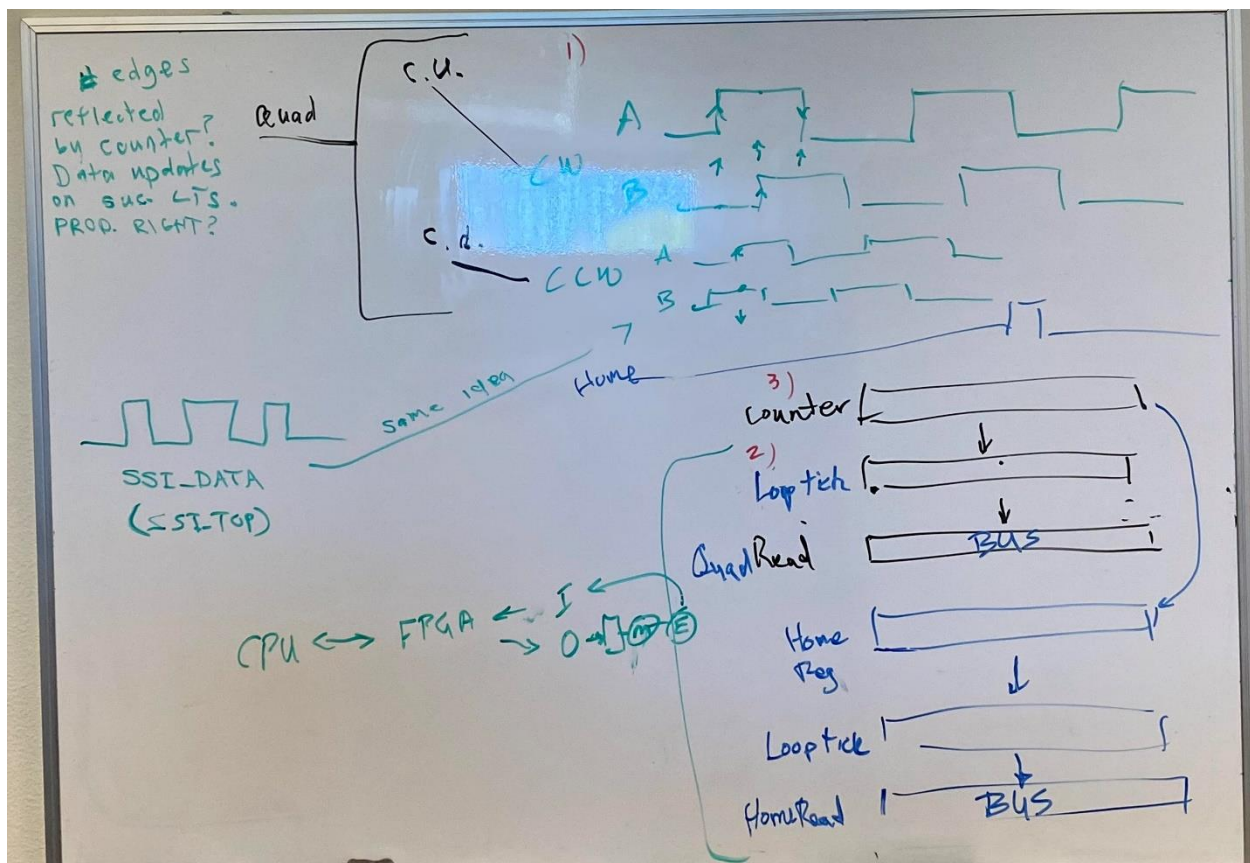 # edges
reflected
by counter?
Data updates
on suc LTS.
PROD. RIGHT?
Quad
C.U.
CW
C.d.
CCW
1)
A
B
A
B
Home
same idea
SSI_DATA
(SSI_TOP)
3)
counter
2)
Looptick
QuadRead
BUS
CPU FPGA I
O M E
Home
Reg
Looptick
HomeRead
BUS